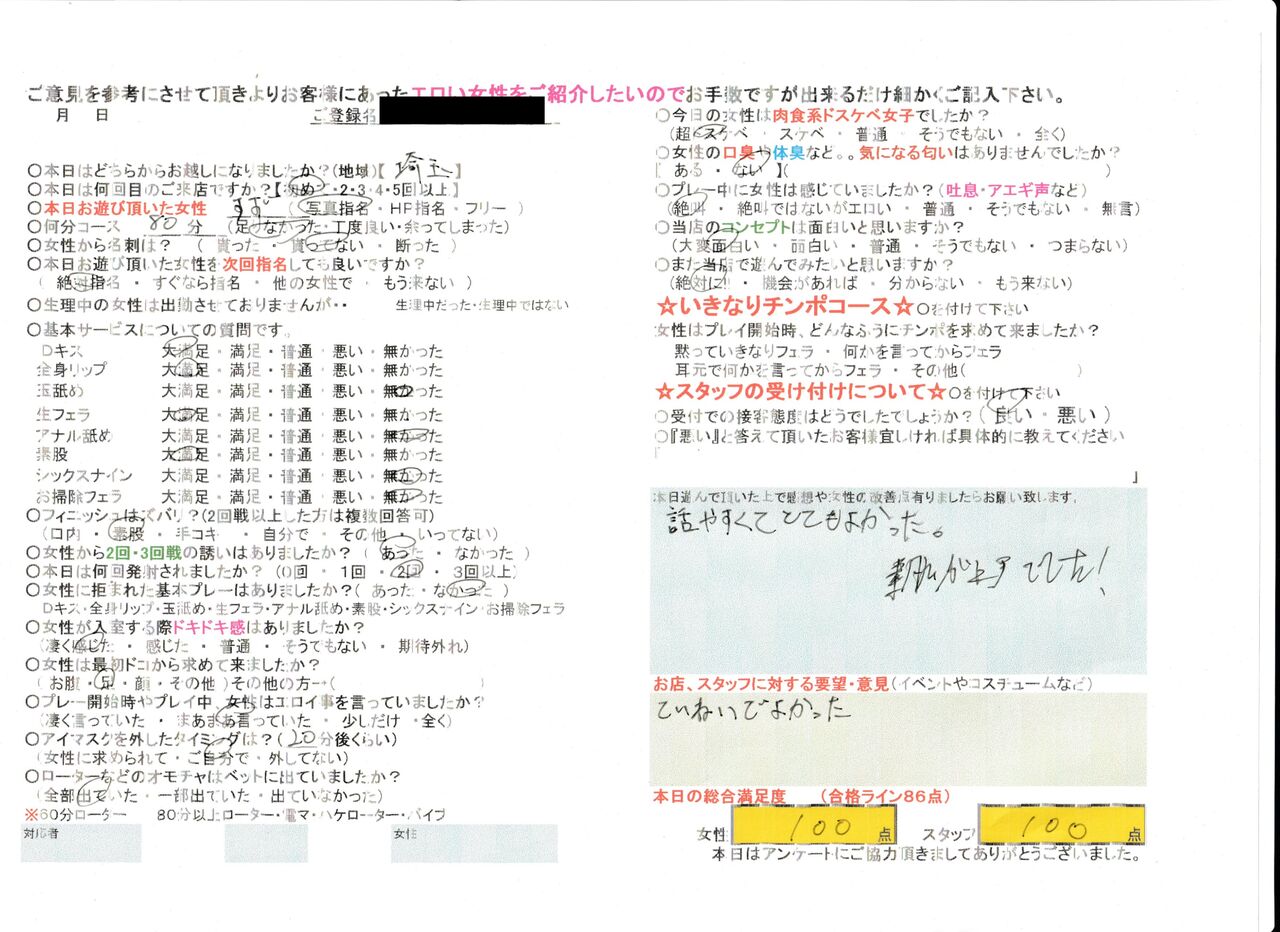 ご意見を参考にさせて頂きよりお客様にあったエロい女性をご紹介したいのでお手数ですが出来るだけ細かくご記入下さい。
月 日 ご登録名
〇本日はどちらからお越しになりましたか?(地域)【 埼玉 】
〇本日は何回目のご来店ですか?【初めて・2・3・4・5回以上】
〇本日お遊び頂いた女性 (写真指名・HP指名・フリー)
〇何分コース 80 分 (足りなかった・丁度良い・余ってしまった)
〇女性から名刺は? (貰った・貰ってない・断った)
〇本日お遊び頂いた女性を次回指名しても良いですか?
(絶対指名・すぐなら指名・他の女性で・もう来ない)
〇生理中の女性は出勤させておりませんが・・ 生理中だった・生理中ではない
〇基本サービスについての質問です。
Dキス 大満足・満足・普通・悪い・無かった
全身リップ 大満足・満足・普通・悪い・無かった
玉舐め 大満足・満足・普通・悪い・無かった
生フェラ 大満足・満足・普通・悪い・無かった
アナル舐め 大満足・満足・普通・悪い・無かった
素股 大満足・満足・普通・悪い・無かった
シックスナイン 大満足・満足・普通・悪い・無かった
お掃除フェラ 大満足・満足・普通・悪い・無かった
〇フィニッシュはズバリ?(2回戦以上した方は複数回答可)
(口内・素股・手コキ・自分で・その他・いってない)
〇女性から2回・3回戦の誘いはありましたか? (あった・なかった)
〇本日は何回発射されましたか? (0回・1回・2回・3回以上)
〇女性に拒まれた基本プレーはありましたか?(あった・なかった)
Dキス・全身リップ・玉舐め・生フェラ・アナル舐め・素股・シックスナイン・お掃除フェラ
〇女性が入室する際ドキドキ感はありましたか?
(凄く感じた・感じた・普通・そうでもない・期待外れ)
〇女性は最初ドコから求めて来ましたか?
(お腹・足・顔・その他)その他の方→( )
〇プレー開始時やプレイ中、女性はエロイ事を言っていましたか?
(凄く言っていた・まあまあ言っていた・少しだけ・全く)
〇アイマスクを外したタイミングは?(20分後くらい)
(女性に求められて・ご自分で・外してない)
〇ローターなどのオモチャはベットに出ていましたか?
(全部出ていた・一部出ていた・出ていなかった)
※60分ローター 80分以上ローター・電マ・ハケローター・バイブ
対応者 女性
〇今日の女性は肉食系ドスケベ女子でしたか?
(超ドスケベ・スケベ・普通・そうでもない・全く)
〇女性の口臭や体臭など。。気になる匂いはありませんでしたか?
[ある・ない](
〇プレー中に女性は感じていましたか?(吐息・アエギ声など)
(絶叫・絶叫ではないがエロい・普通・そうでもない・無言)
〇当店のコンセプトは面白いと思いますか?
(大変面白い・面白い・普通・そうでもない・つまらない)
〇また当店で遊んでみたいと思いますか?
(絶対に!!・機会があれば・分からない・もう来ない)
☆いきなりチンポコース☆〇を付けて下さい
女性はプレイ開始時、どんなふうにチンポを求めて来ましたか?
黙っていきなりフェラ・何かを言ってからフェラ
耳元で何かを言ってからフェラ・その他( )
☆スタッフの受け付けについて☆〇を付けて下さい
〇受付での接客態度はどうでしたでしょうか?(良い・悪い)
〇『悪い』と答えて頂いたお客様宜しければ具体的に教えてください
「 」
本日遊んで頂いた上で感想や女性の改善点有りましたらお願い致します。
話やすくてとてもよかった。
が上手でした!
お店、スタッフに対する要望・意見(イベントやコスチュームなど)
ていねいでよかった
本日の総合満足度 (合格ライン86点)
女性 100 点 スタッフ 100 点
本日はアンケートにご協力頂きましてありがとうございました。